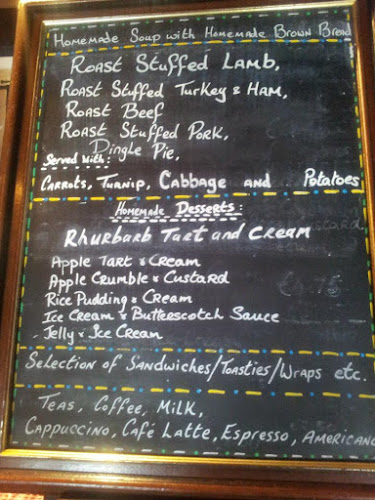 Homemade Soup with Homemade Brown Bread
Roast Stuffed Lamb,
Roast Stuffed Turkey & Ham,
Roast Beef
Roast Stuffed Pork,
Dingle Pie,
Served With:
Carrots, Turnip, Cabbage and Potatoes
Homemade Desserts:
Rhurbarb Tart and Cream
Apple Tart & Cream
Apple Crumble & Custard
Rice Pudding & Cream
Ice Cream & Butterscotch Sauce
Jelly & Ice Cream
Selection of Sandwiches/Toasties/Wraps etc.
Teas, Coffee, Milk,
Cappuccino, Café Latte, Espresso, Americano